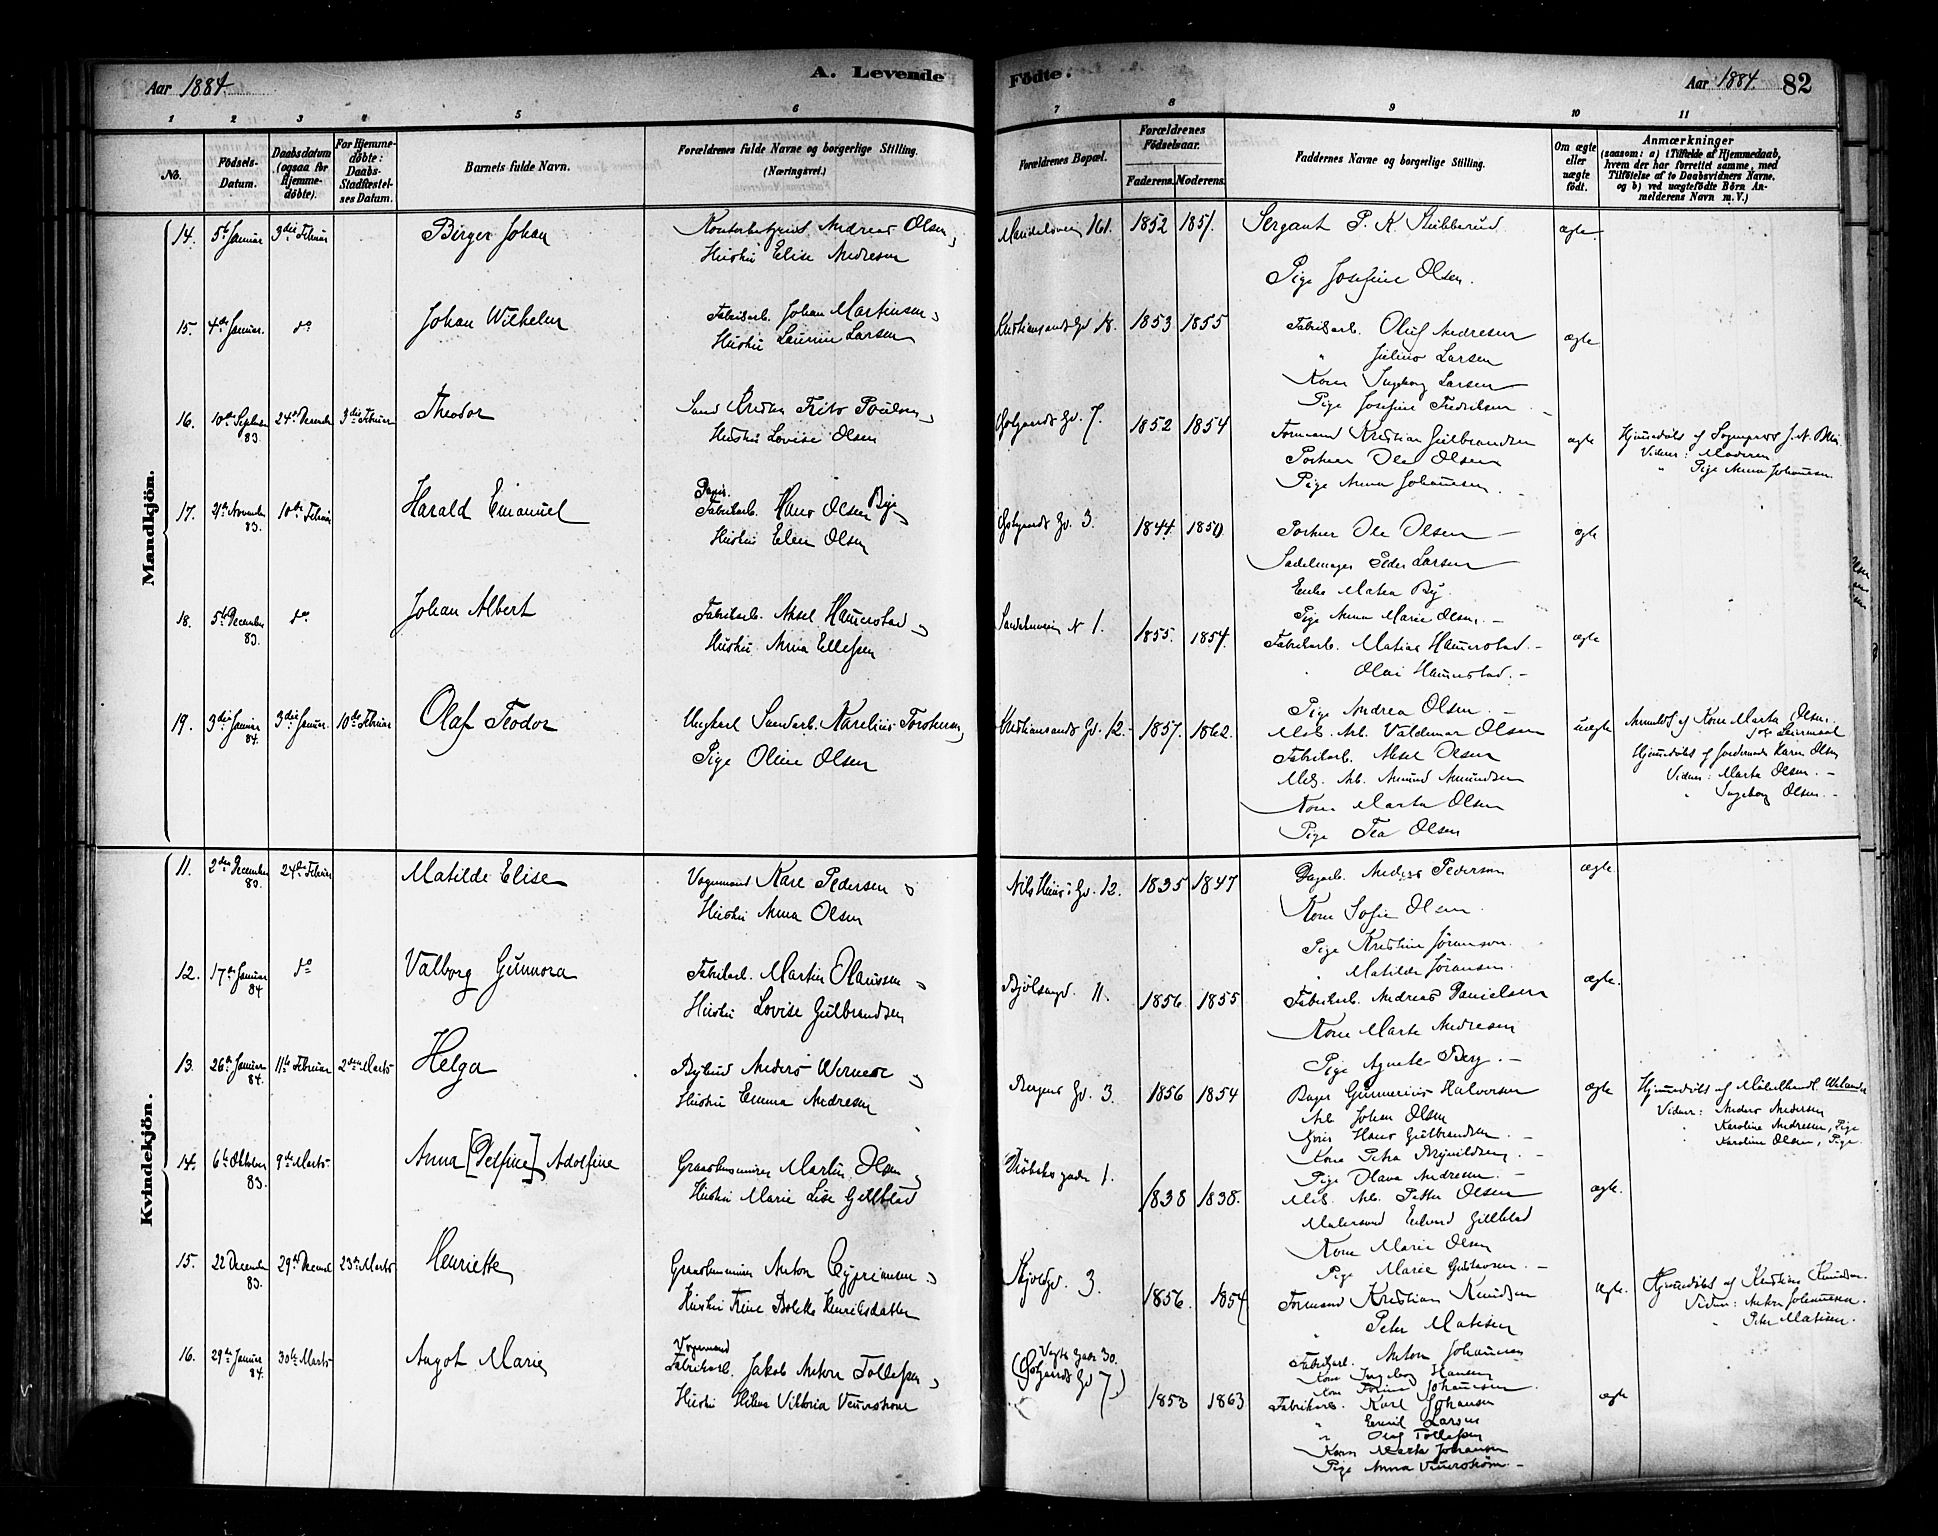 Aar 1884.
A. Levende Födte.
Aar 1884. 82
1 2 3 4 5 6 7 8 9 10 11
No.
Födsels-Datum.
Daabsdatum (ogsaa for Hjemme-döbte).
For Hjemme-döbte: Daabs-Stadfæstel-ses Datum.
Barnets fulde Navn.
Forældrenes fulde Navne og borgerlige Stilling.
(Næringsvei.)
Forældrenes Bopæl.
Forældrenes Födselsaar.
Faderens. Moderens.
Faddernes Navne og borgerlige Stilling.
Om ægte eller uægte födt.
Anmærkninger
(saasom: a) i Tilfælde af Hjemmedaab,
hvem der har forrettet samme, med
Tilföielse af to Daabsvidners Navne,
og b) ved uægtefödte Börn An-
melderens Navn m. V.)
Mandkjön.
14. 5te Januar 3die Februar Birger Johan
Andreas Olsen,
Hustru Elise Andresen
161. 1852 1851.
Sergant P. K. Stubberud
Pige Josefine Olsen.
ægte.
15. 4de Januar. do Johan Wilhelm
Fabrikarb. Johan Martinsen,
Hustru Larsen
Kristiansands Gd 18. 1853 1855
Fabrikarb. Oluf Andresen
" Julius Larsen
Kone Ingeborg Larsen
Pige Josefine Fredriksen
ægte
16. 10de September 83. 24de December 3die Februar Theodor
Poulsen,
Hustru Lovise Olsen
Gd. 7. 1852 1854
Formand Kristian Gulbrandsen
Portner Ole Olsen
Pige Anna Johansen.
ægte
Hjemmedöbt af
Vidner: Moderen
" Pige Anna Johansen
17. November 83. 10de Februar Harald Emanuel
Fabrikarb. Hans Olsen Bye,
Hustru Elen Olsen
Gd. 3. 1844 1850
Portner Ole Olsen
Sadelmager Peder Larsen
Enke Mathea By
Pige Anna Marie Olsen.
ægte
18. 5te December 83. do Johan Albert
Fabrikarb. Aksel Hammerstad,
Hustru Anna Ellefsen
1. 1855. 1854.
Fabrikarb. Matias Hammerstad.
" Hammerstad.
Pige Andrea Olsen.
ægte
19. 3die Januar 84. 3die Januar. 10de Februar Olaf Teodor
Ungkarl Karelius Torstensen,
Pige Oline Olsen
Kristiansands Gd. 12. 1857. 1862.
Arb. Valdemar Olsen
Fabrikarb. Aksel Olsen
Arb. Amund Amundsen
Kone Marta Olsen
Pige Tea Olsen
uægte
Anmeldt af Kone Marta Olsen.
Hjemmedöbt af Jordemoder Karen Olsen
Vidner: Marta Olsen.
" Ingeborg Olsen.
Kvindekjön.
11. 2den December 83. 24de Februar Matilde Elise
Vognmand Karl Pedersen,
Hustru Anna Olsen
Gd. 12. 1835 1847
Dagarb. Anders Pederson
Kone Sofie Olsen.
Pige Kristine Jöranson.
" Matilde Jöransen.
ægte.
12. 17de Januar 84 do Valborg Gunnora
Fabrikarb. Martin Olaussen,
Hustru Lovise Gulbrandsen
Bjölsengd. 11. 1856. 1855
Fabrikarb. Andreas Danielsen
Kone Marte Andresen
Pige Agnete Berg.
ægte.
13. 26de Januar 84. 11te Februar 2den Marts Helga
Anders Werner,
Hustru Emma Andresen
Bergens Gd. 3. 1856 1854
Bager Gunnerius Halvorsen
Arb. Johan Olsen
Hans Gulbrandsen
Kone Petra Brynildsen
Pige Olava Andresen
ægte
Hjemmedöbt af
Vidner: Anders Andersen
Karoline Andresen, Pige
Karoline Olsen, Pige.
14. 6te Oktober 83. 9de Marts. Anna [Delfine] Adolfine
Martin Olsen,
Hustru Marie Lise Gillblad
1. 1838 1838.
Arb. Petter Olsen
Malersvend Edvard Gillblad
Kone Marie Olsen
Pige Marie Gustavsen.
ægte.
15. 22 December 83. 29de Decembr 23de Marts Henriette
Anton Cypriansen,
Hustru Trine Bolette Henriksdatter
3. 1856. 1854
Formand Kristian Knudsen
" Peter Matisen
Fabrikarb. Anton Johansen
Kone Ingeborg Hansen
Kone Johansen
ægte.
Hjemmedöbt af Kristine Knudsen.
Vidner: Anton Johansen.
" Peter Matisen.
16. 29de Januar 84. 30te Marts Angot Marie
Vognmand
Fabrikarb. Jakob Anton Tollefsen,
Hustru Hilma Viktoria Vennerström
Vogts Gade 30.
Gd 7.) 1853 1863
Fabrikarb. Karl Johansen
" Emil Larsen
" Oluf Tollefsen
Kone Marta Johansen
Pige Anna Vennerström
ægte